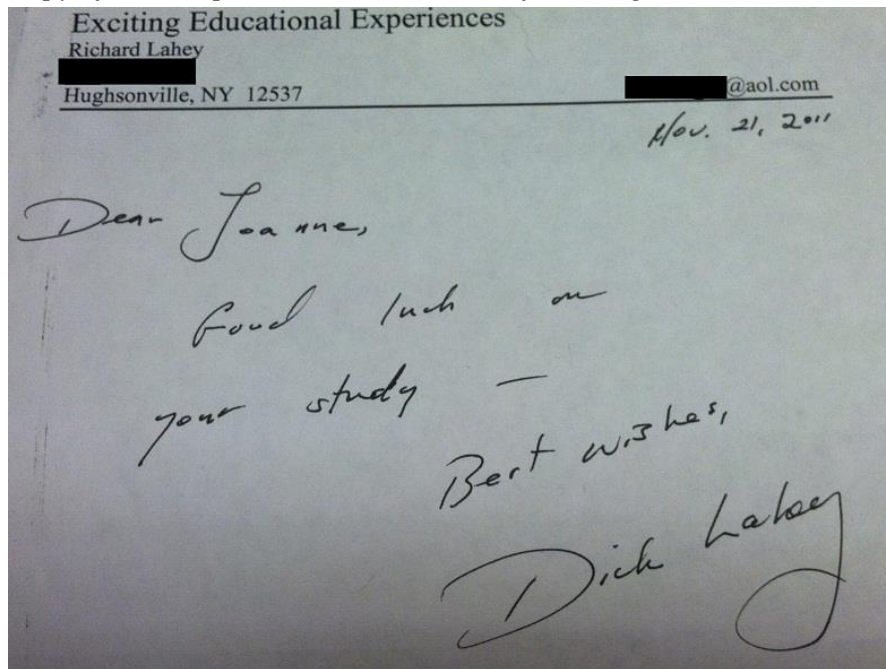 Exciting Educational Experiences
Richard Lahey
Hughsonville, NY 12537
@aol.com
Nov. 21, 2011
Dear Joanne,
Good luck on
your study —
Best wishes,
Dick Lahey